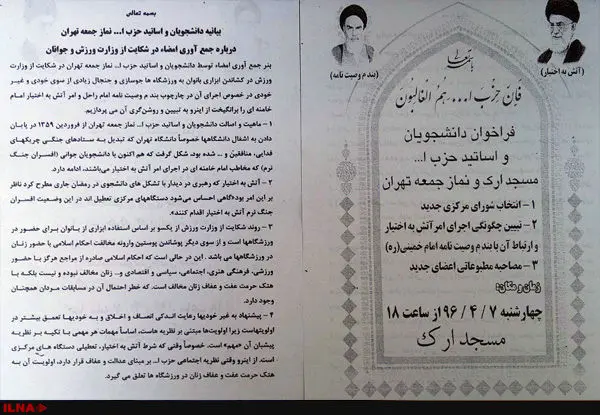 بسمه تعالی
بیانیه دانشجویان و اساتید حزب ا... نماز جمعه تهران
درباره جمع آوری امضاء در شکایت از وزارت ورزش و جوانان
بنر جمع آوری امضاء توسط دانشجویان و اساتید حزب ا... نماز جمعه تهران در شکایت از وزارت
ورزش در کشاندن ابزاری بانوان به ورزشگاه ها جوسازی و جنجال زیادی از سوی خودی و غیر
خودی در خصوص اجرای آن در چارچوب بند م وصیت نامه امام راحل و امر آتش به اختیار امام
خامنه ای را برانگیخت از اینرو به تبیین و روشن‌گری آن می پردازیم.
۱ – ماهیت و اصالت دانشجویان و اساتید حزب ا... نماز جمعه تهران از فروردین ۱۳۵۹ در پایان
دادن به اشغال دانشگاهها خصوصاً دانشگاه تهران که تبدیل به ستادهای جنگی چریکهای
فدایی، منافقین و ... شده بود، شکل گرفت که هم اکنون با دانشجویان جوانی (افسران جنگ
نرم) که مخاطب امام خامنه ای در اجرای امر آتش به اختیار می‌باشند، ادامه دارد.
۲ – آتش به اختیار که رهبری در دیدار با تشکل های دانشجوی در رمضان جاری مطرح کرد ناظر
بر این امر بود«گاهی احساس می‌شود دستگاههای مرکزی تعطیل اند در این وضعیت افسران
جنگ نرم آتش به اختیار اقدام کنند».
۳ – روند شکایت از وزارت ورزش از یکسو بر اساس استفاده ابزاری از بانوان برای حضور در
ورزشگاهها است و از سوی دیگر پوشاندن پوستین وارونه مخالفت احکام اسلامی با حضور زنان
در ورزشگاهها می باشد. این در حالی است که احکام اسلامی صادره از مراجع هرگز با حضور
ورزشی، فرهنگی هنری، اجتماعی، سیاسی و اقتصادی و... زنان مخالف نبوده و نیست بلکه با
هتک حرمت عفت و عفاف زنان مخالف است. که خطر احتمال آن در مسابقات مردان همچنان
وجود دارد.
۴ – پیشنهاد به غیر خودیها رعایت اندکی انصاف و اخلاق و به خودیها تعمق بیشتر در
اولویتهاست زیرا اولویت‌ها مبتنی بر نظریه هاست، اساساً مهمات هر مهمی با تکیه بر نظریه
پیشبان آن «مهم» است. خصوصاً وقتی که شرط آتش به اختیار، تعطیلی دستگاه های مرکزی
است. از اینرو وقتی نظریه اجتماعی حزب ا... بر مبنای عدالت و عفاف قرار دارد، اولویت آن به
هتک حرمت عفت و عفاف زنان در ورزشگاه ها تعلق می گیرد.
(بند م وصیت نامه)
(آتش به اختیار)
فَإِنَّ حِزْبَ ا... هُمُ الْغَالِبُونَ
فراخوان دانشجویان
و اساتید حزب ا...
مسجد ارک و نماز جمعه تهران
۱ – انتخاب شورای مرکزی جدید
۲ – تبیین چگونگی اجرای امر آتش به اختیار
و ارتباط آن با بند م وصیت نامه امام خمینی(ره)
۳ – مصاحبه مطبوعاتی اعضای جدید
زمان و مکان:
چهارشنبه ۷ / ۴ / ۹۶ از ساعت ۱۸
مسجد ارک
ILNA